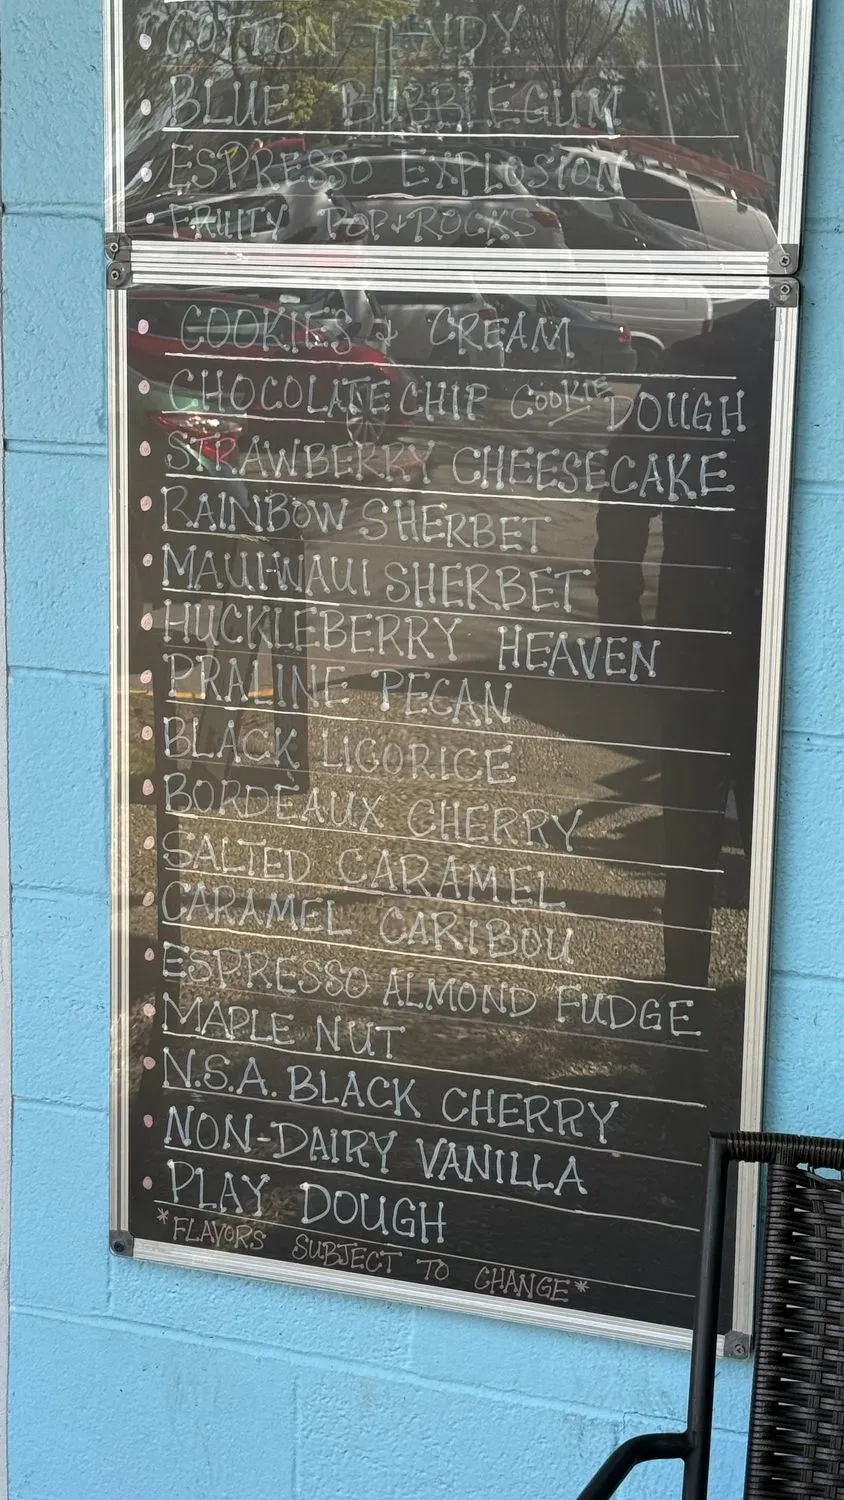 COTTON CANDY
BLUE BUBBLEGUM
ESPRESSO EXPLOSION
FRUITY POP ROCKS
COOKIES & CREAM
CHOCOLATE CHIP COOKIE DOUGH
STRAWBERRY CHEESECAKE
RAINBOW SHERBET
MAUI-WAUI SHERBET
HUCKLEBERRY HEAVEN
PRALINE PECAN
BLACK LICORICE
BORDEAUX CHERRY
SALTED CARAMEL
CARAMEL CARIBOU
ESPRESSO ALMOND FUDGE
MAPLE NUT
N.S.A. BLACK CHERRY
NON-DAIRY VANILLA
PLAY DOUGH
*FLAVORS SUBJECT TO CHANGE*